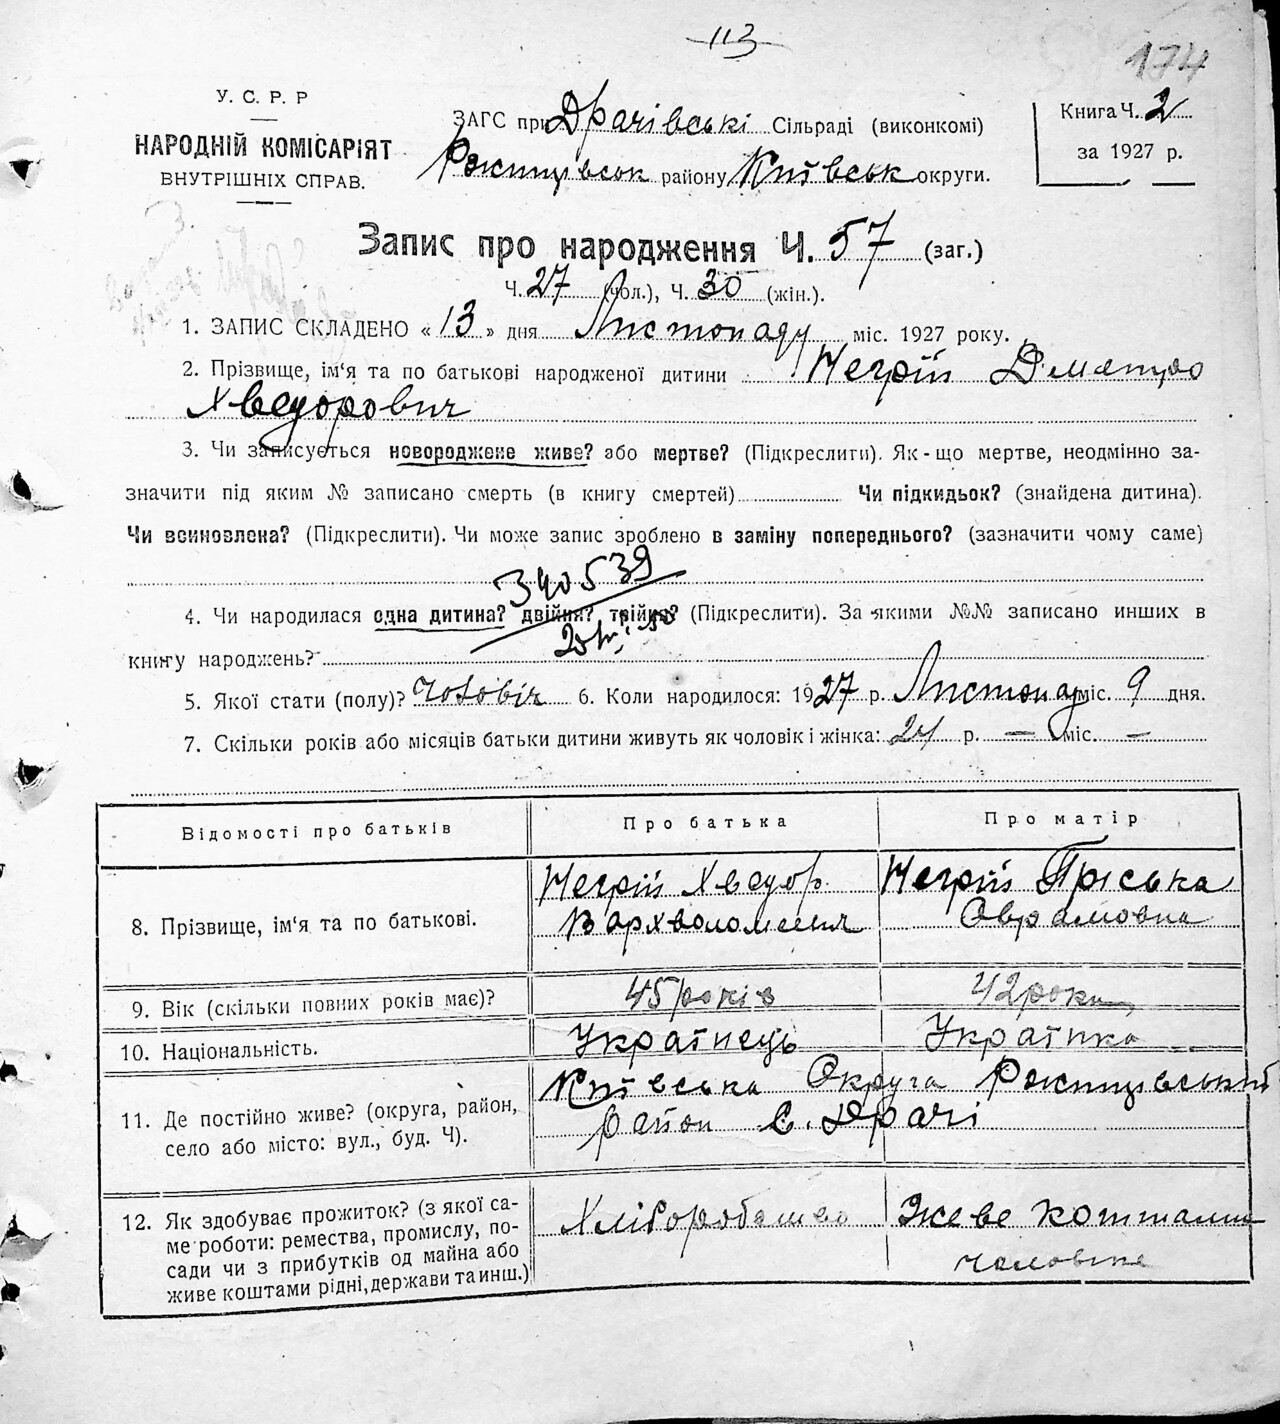 113
174
У. С. Р. Р
НАРОДНІЙ КОМІСАРІЯТ
ВНУТРІШНІХ СПРАВ.
ЗАГС при Драчівські Сільраді (виконкомі)
Ржищівськ району Київськ округи.
Книга Ч. 2
за 1927 р.
Запис про народження Ч. 57 (заг.)
Ч. 27 (чол.), Ч. 30 (жін.).
1. ЗАПИС СКЛАДЕНО «13» дня Листопаду міс. 1927 року.
2. Прізвище, ім‘я та по батькові народженої дитини Негрій Дмитро
Хведорович
3. Чи записується новороджене живе? або мертве? (Підкреслити). Як-що мертве, неодмінно за-
значити під яким № записано смерть (в книгу смертей) Чи підкидьок? (знайдена дитина).
Чи всиновлена? (Підкреслити). Чи може запис зроблено в заміну попереднього? (зазначити чому саме)
340539
4. Чи народилася одна дитина? двійня? трійня? (Підкреслити). За якими №№ записано инших в
книгу народжень?
5. Якої стати (полу)? Чоловіч 6. Коли народилося: 1927 р. Листопад міс. 9 дня.
7. Скільки років або місяців батьки дитини живуть як чоловік і жінка: 24 р. — міс. —
Відомості про батьків Про батька Про матір
8. Прізвище, ім‘я та по батькові. Негрій Хведор Негрій Пріська
Оврамовна
9. Вік (скільки повних років має)? 45 років 42 роки
10. Національність. Українець Українка
11. Де постійно живе? (округа, район, село або місто: вул., буд. Ч). Київська Округа Ржищівський
район с. Драчі
12. Як здобуває прожиток? (з якої са-
ме роботи: ремества, промислу, по-
сади чи з прибутків од майна або
живе коштами рідні, держави та инш.)
Хліборобство
Живе коштами
чоловіка